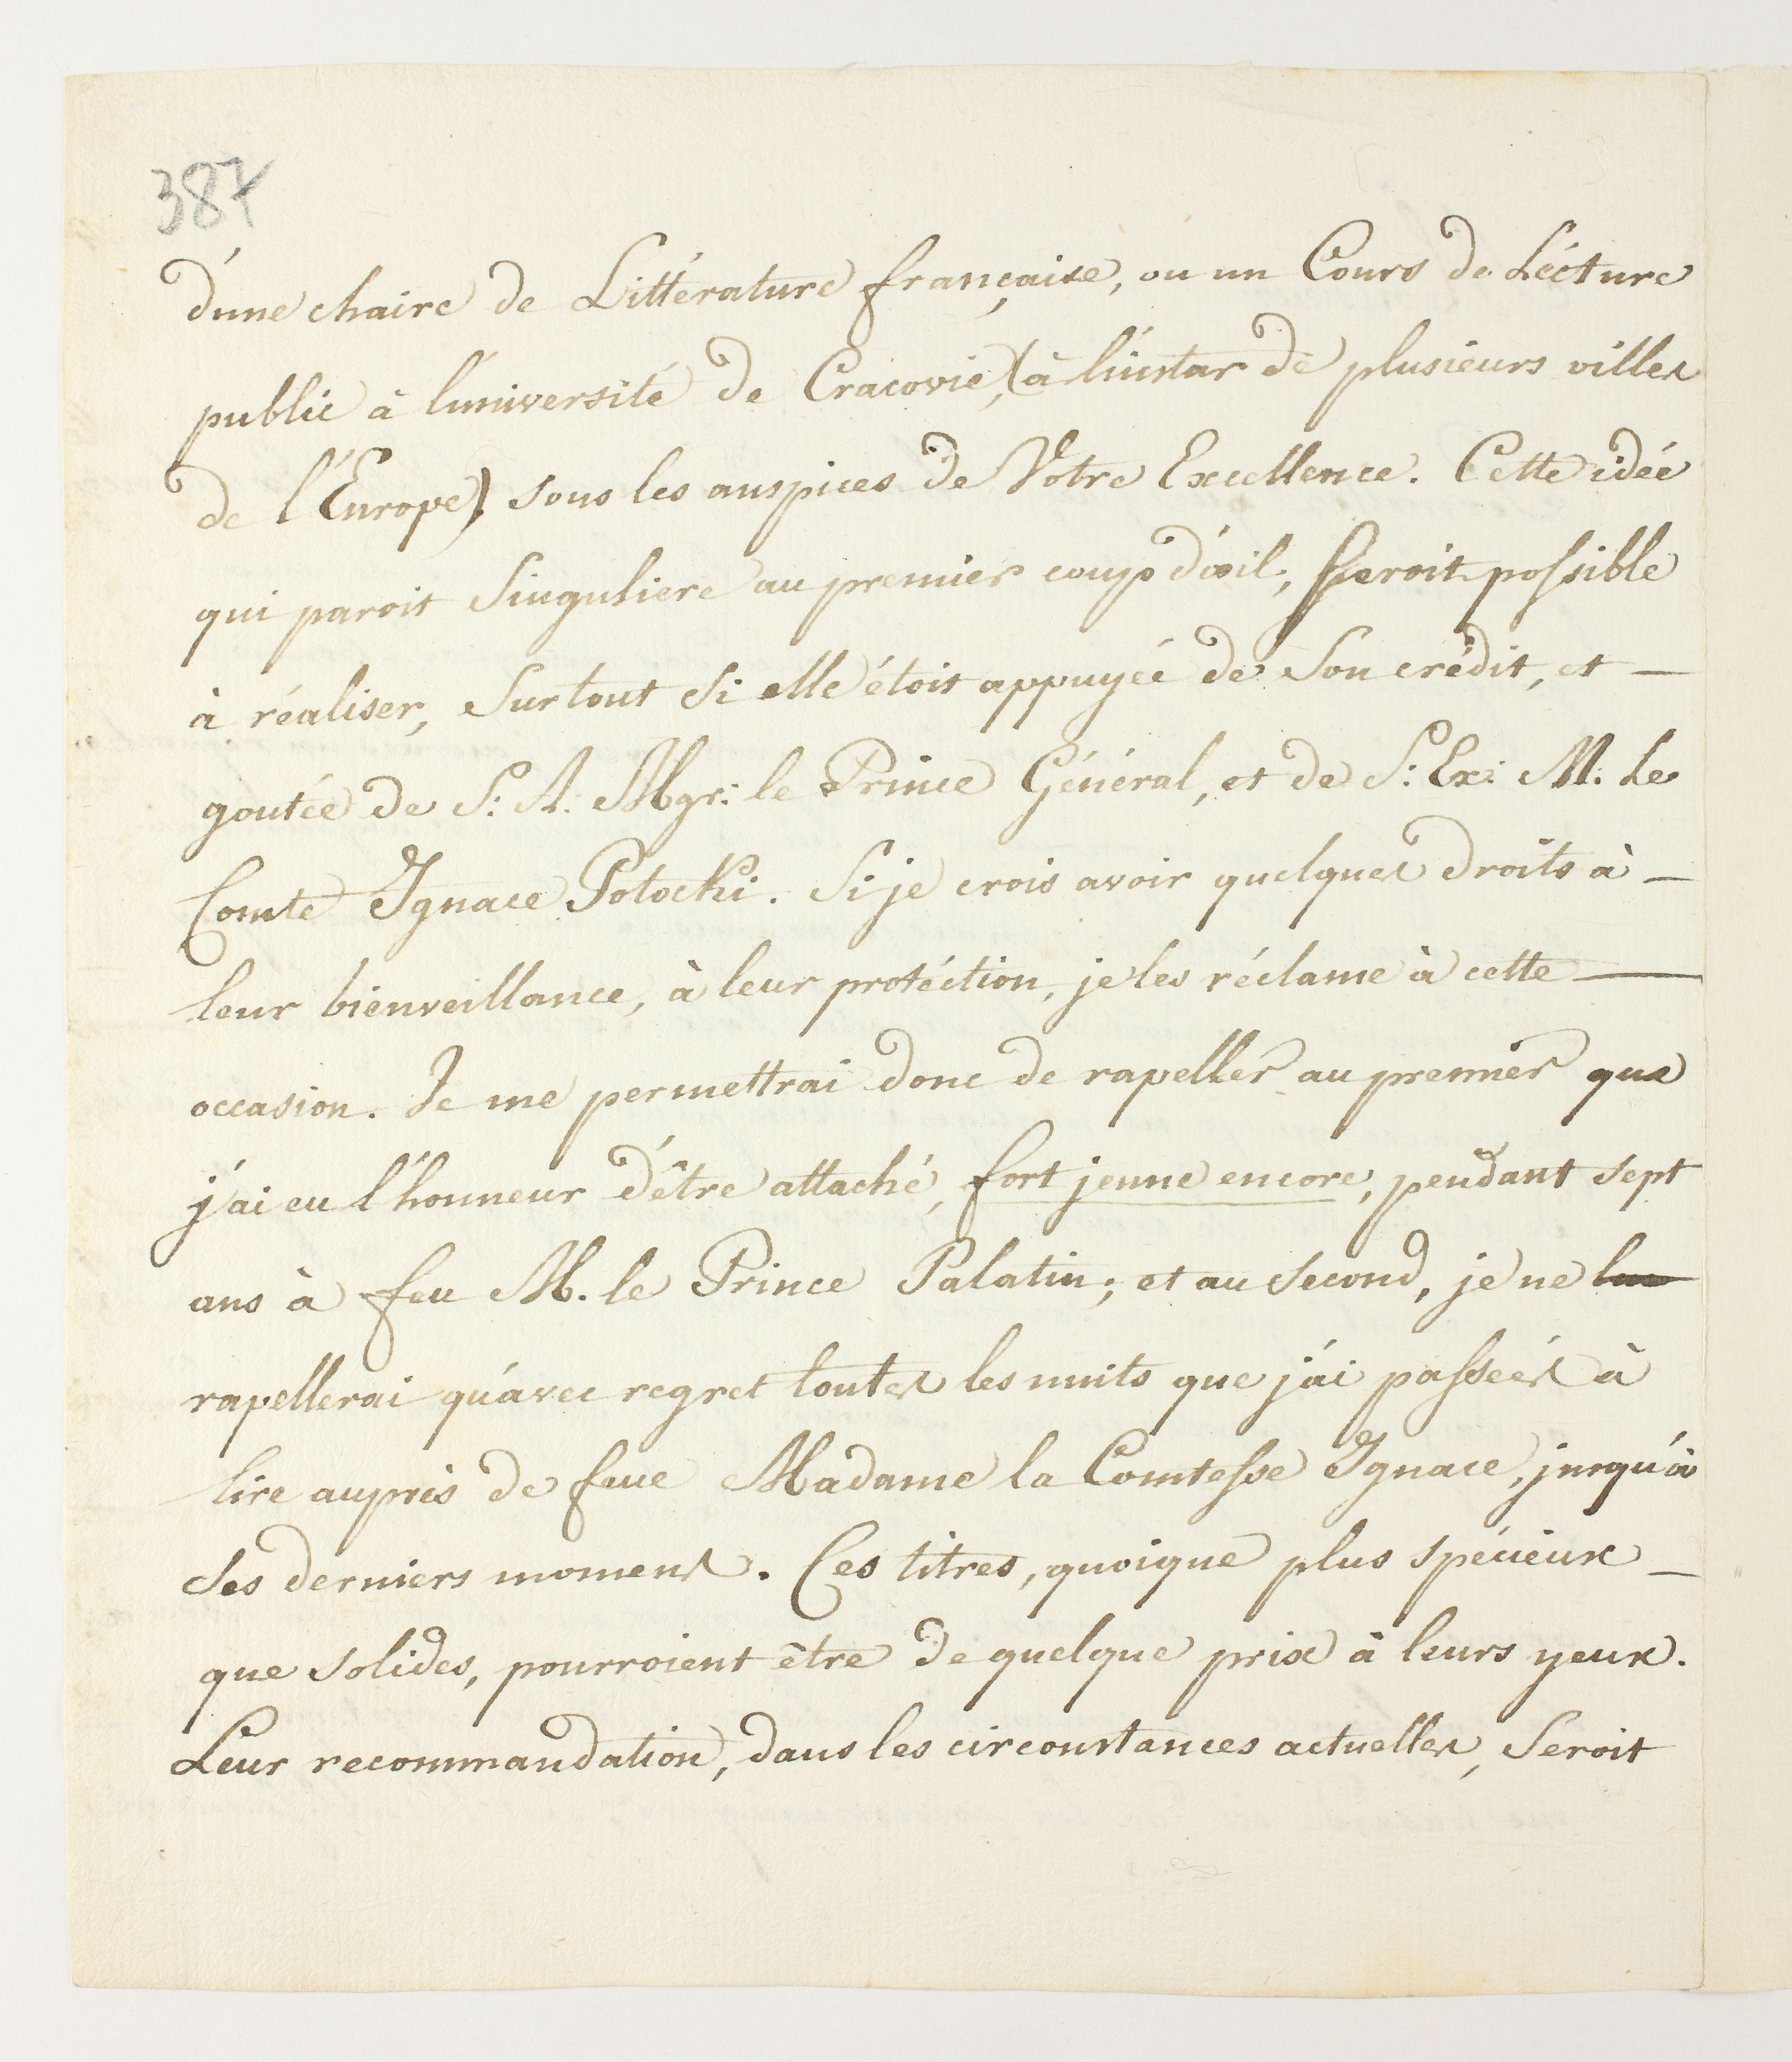 387
d'une chaire de Littérature française, ou un Cours de Lécture
public à l'université de Cracovie, (à l'instar de plusieurs villes
de l'Europe) sous les auspices de Votre Excellence. Cette idée
qui paroit Singuliere au premier coup d'œil, seroit possible
à réaliser, Surtout Si elle étoit appuyée de Son crédit, et —
goutée de S: A. Mgr: le Prince Général, et de S: Ex: M: Le
Comte Ignace Potocki. Si je crois avoir quelques droits à —
leur bienveillance, à leur protéction, je les réclame à cette —
occasion. Je me permettrai donc de rapeller au premier que
j'ai eu l'honneur d'être attaché, fort jeune encore, pendant sept
ans à feu M. le Prince Palatin; et au Second, je ne
rapellerai qu'avec regret toutes les nuits que j'ai passées à
lire auprès de feue Madame la Comtesse Ignace, jusqu'à
Ses derniers momens. Ces titres, quoique plus spécieux —
que solides, pourroient être de quelque prix à leurs yeux.
Leur recommandation, dans les circonstances actuelles, Seroit